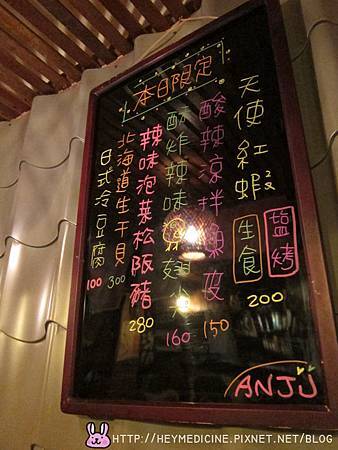 本日限定
天使紅蝦
鹽烤
生食
200
酸辣涼拌魚皮
150
酥炸辣味翅
160
辣味泡菜松阪豬
280
北海道生干貝
300
日式冷豆腐
100
ANJU
HTTP://HEYMEDICINE.PIXNET.NET/BLOG